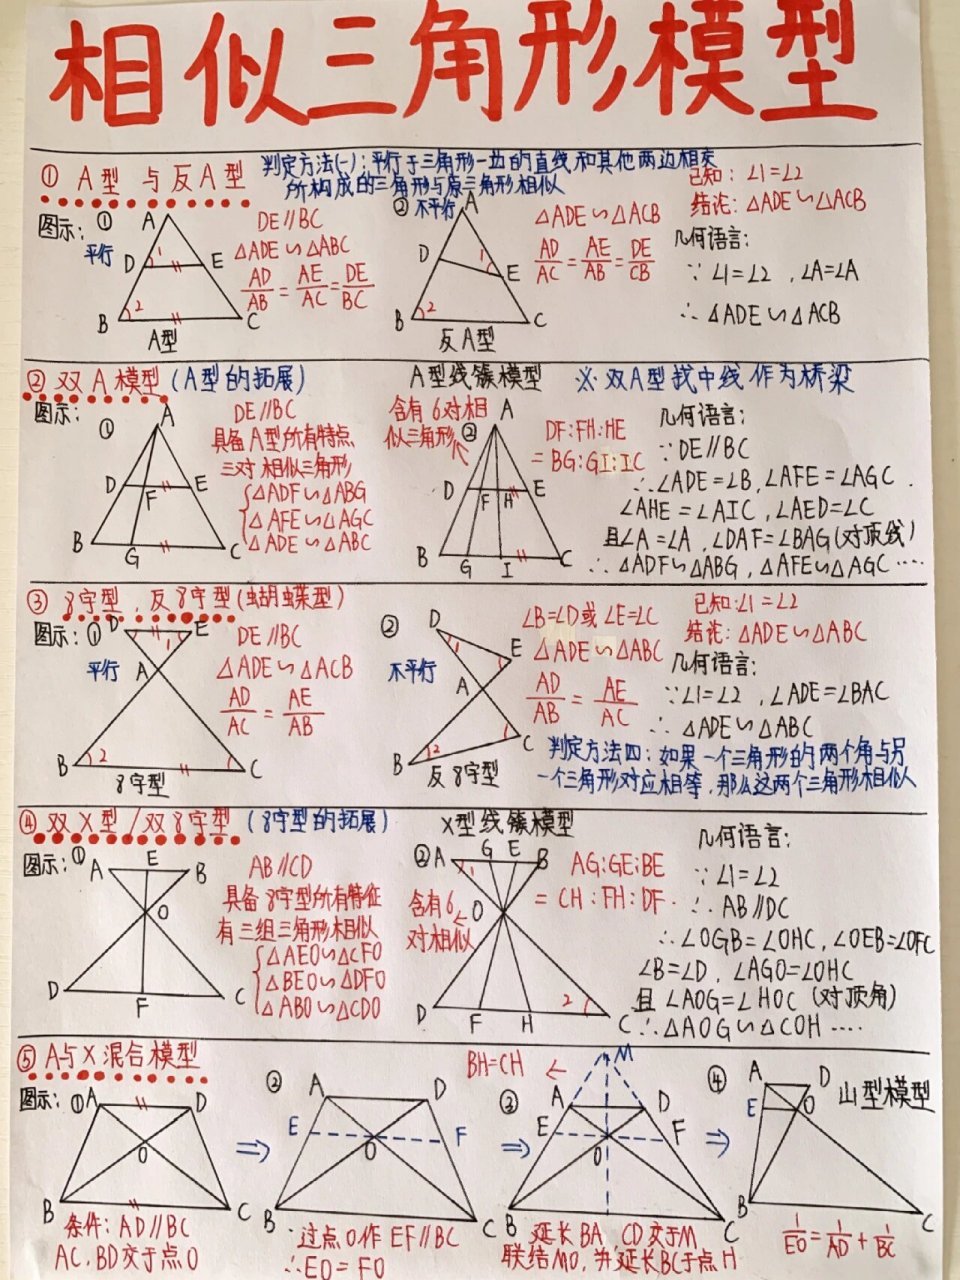 相似三角形模型
① A型 与反A型
判定方法(一):平行于三角形一边的直线和其他两边相交
所构成的三角形与原三角形相似
图示: ①
平行
A
D
E
B
C
1
2
A型
DE//BC
△ADE∽△ABC
AD/AB = AE/AC = DE/BC
② 不平行
A
D
E
B
C
1
2
反A型
△ADE∽△ACB
AD/AC = AE/AB = DE/CB
已知: ∠1=∠2
结论: △ADE∽△ACB
几何语言:
∵ ∠1=∠2 , ∠A=∠A
∴ △ADE∽△ACB
② 双A模型 (A型的拓展)
A型线簇模型
※ 双A型找中线作为桥梁
图示:
①
A
D
F
E
B
G
C
DE//BC
具备A型所有特点
三对相似三角形
△ADF∽△ABG
△AFE∽△AGC
△ADE∽△ABC
含有6对相
似三角形
②
A
D
F
H
E
B
G
I
C
DF:FH:HE
=BG:GI:IC
几何语言:
∵DE//BC
∴∠ADE=∠B,∠AFE=∠AGC.
∠AHE=∠AIC,∠AED=∠C
且∠A=∠A,∠DAF=∠BAG(对顶线)
∴△ADF∽△ABG,△AFE∽△AGC····
③ 8字型、反8字型(蝴蝶型)
图示:①
平行
D
E
1
A
B
2
C
8字型
DE//BC
△ADE∽△ACB
AD/AC = AE/AB
②
不平行
D
E
A
B
2
C
反8字型
∠B=∠D或∠E=∠C
△ADE∽△ABC
AD/AB = AE/AC
已知:∠1=∠2
结论: △ADE∽△ABC
几何语言:
∵∠1=∠2 ,∠ADE=∠BAC
∴ △ADE∽△ABC
判定方法四: 如果一个三角形的两个角与另
一个三角形对应相等,那么这两个三角形相似
④ 双X型/双8字型 (8字型的拓展)
X型线簇模型
图示:①
A
E
B
O
D
F
C
AB//CD
具备8字型所有特征
有三组三角形相似
△AEO∽△CFO
△BEO∽△DFO
△ABO∽△CDO
②
A
G
E
B
1
O
D
F
H
2
C
含有6
对相似
AG:GE:BE
= CH:FH:DF.
几何语言:
∵ ∠1=∠2
∴ AB//DC
∴∠OGB=∠OHC,∠OEB=∠OFC
∠B=∠D, ∠AGO=∠OHC
且 ∠AOG=∠HOC (对顶角)
∴△AOG∽△COH ····
⑤ A与X混合模型
图示:①
A
D
O
B
C
条件: AD//BC
AC、BD交于点O
②
A
D
E
F
O
B
C
过点O作EF//BC
∴EO=FO
BH=CH
③
M
A
D
E
F
O
B
C
延长BA、CD交于M
联结MO,并延长BC于点H
④
A
D
E
O
B
C
山型模型
1/EO = 1/AD + 1/BC